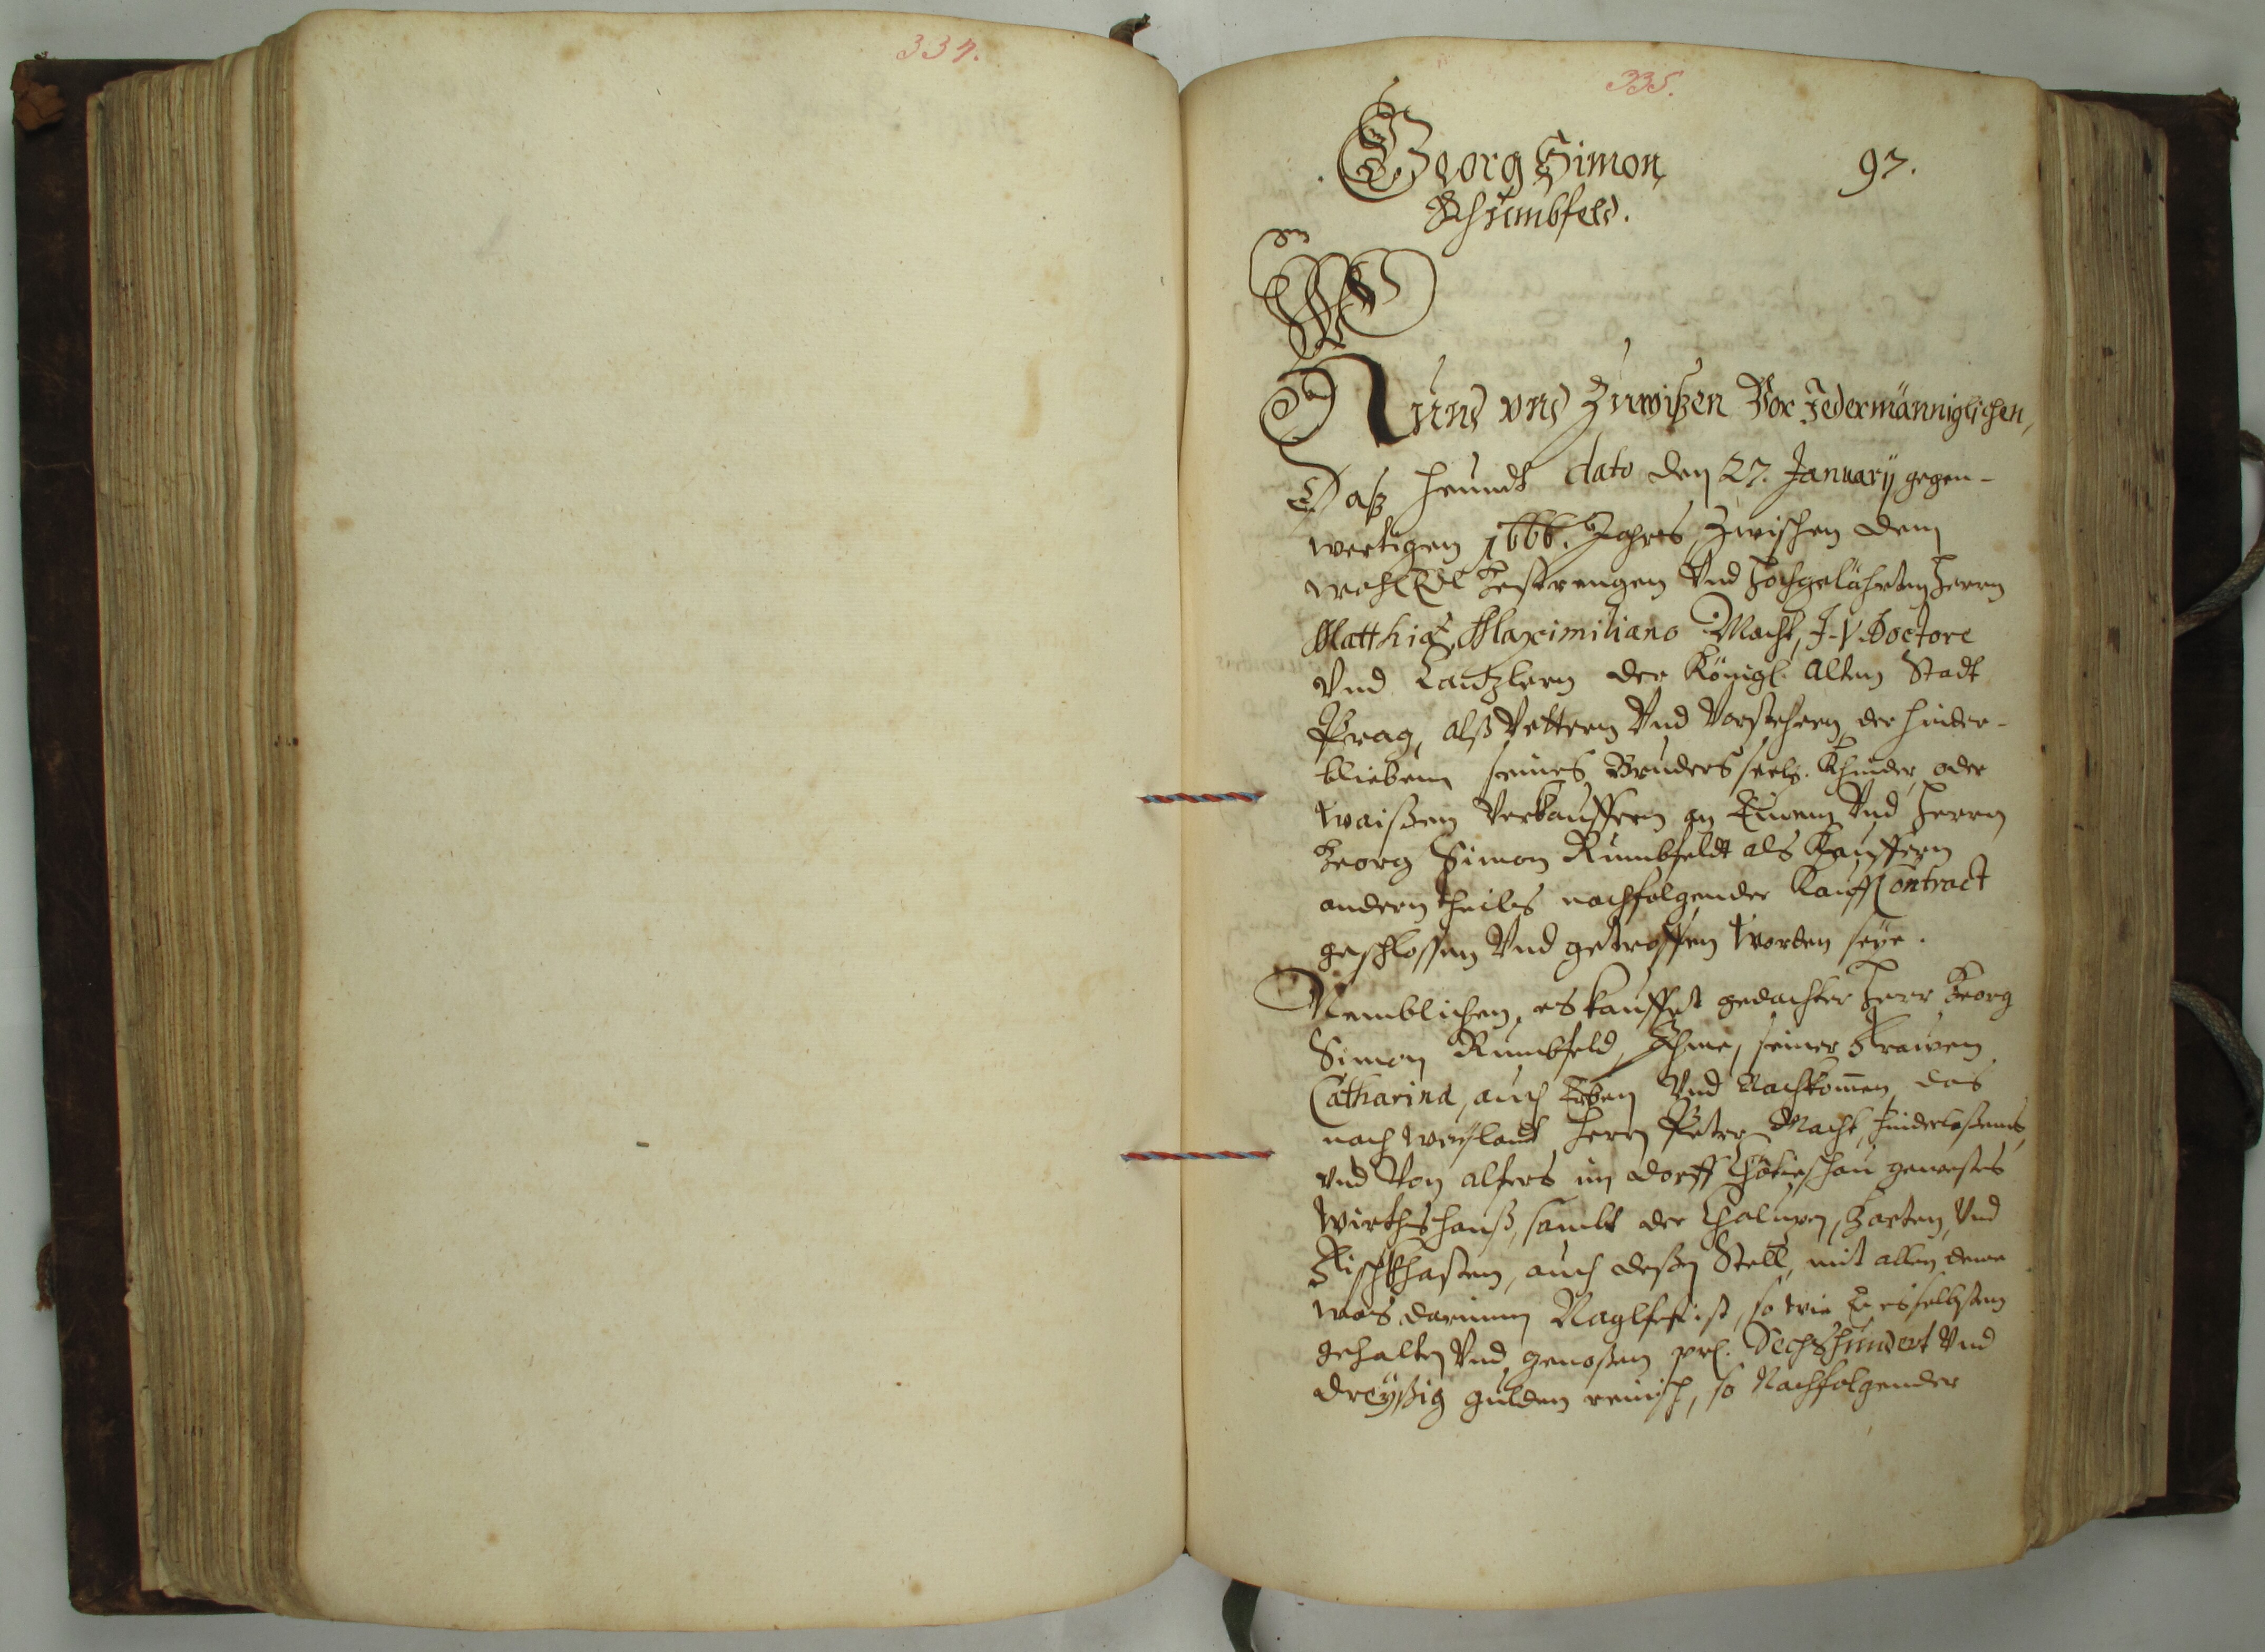 334.
335.
Georg Simon 97.
Rhumbfeld.
Kund vnd Zuwißen Vor Jedermänniglichen,
Daß heundt dato den 27. January gegen-
wertigen 1666. Jahres zwischen dem
wohl Edl Gestrengen Vnd Hochgelährten Herrn
Matthia Maximiliano Macht, J. V. Doctore
Vnd Cantzlern der Königl. Alten Stadt
Prag, alß Vettern Vnd Vorstehern der hinder-
bliebenen seines Bruders seelg. Khinder, oder
waißen Verkauffern an Einem Vnd Herrn
Georg Simon Rumbfeldt als Kauffern
andern theils nachfolgender Kauff Contract
geschlossen Vnd getroffen worden seye.
Nemblichen, es kauffet gedachter Herr Georg
Simon Rumbfeld, Ihme, seiner Frawen
Catharina, auch Erben Vnd Nachkom̄en das
nach weylandt Herrn Peter Macht, hinderlaßenes
vnd Von alters im dorff gewestes
Wirthshauß, sambt der Chalupen, Garten, Vnd
Fischkhasten, auch deßen Stell, mit allen deme
was darinnen Naglfest ist, so wie Er es selbsten
gehalten Vnd genoßen per. Sechshundert Vnd
dreyßig gulden reinisch, so Nachfolgender